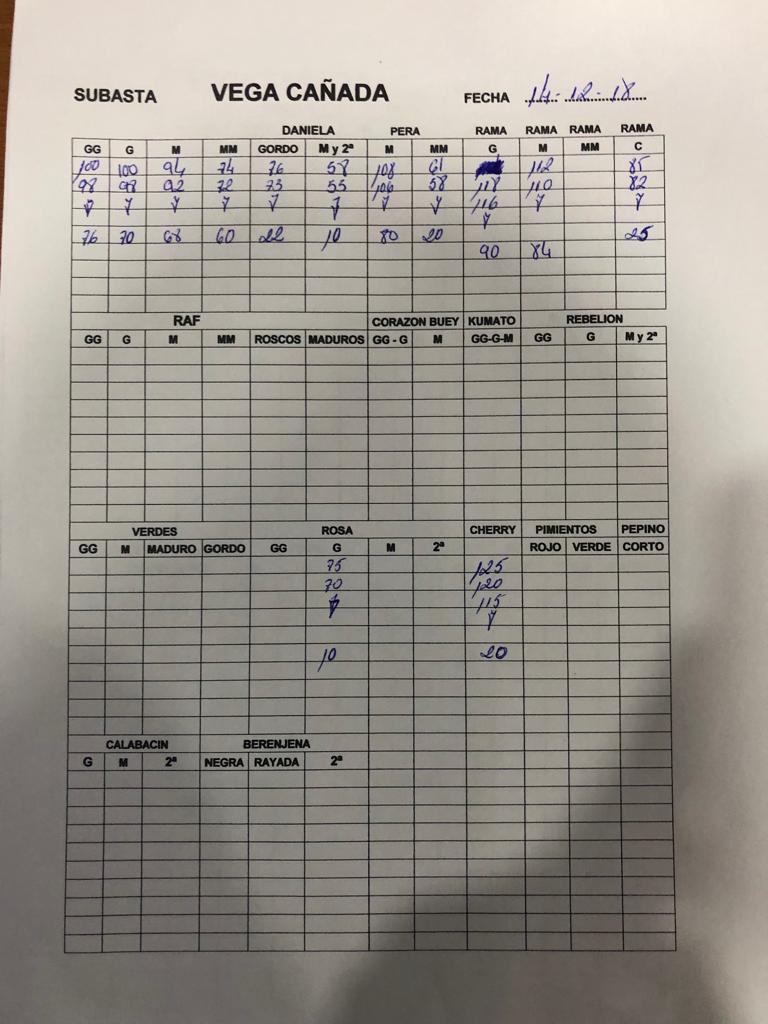 SUBASTA VEGA CAÑADA FECHA 14-12-18
DANIELA PERA RAMA RAMA RAMA RAMA
GG G M MM GORDO M y 2ª M MM G M MM C
100 100 94 74 76 58 108 61 112 85
98 98 92 72 73 55 106 58 118 110 82
116
76 70 68 60 22 10 80 20 25
90 84
RAF CORAZON BUEY KUMATO REBELION
GG G M MM ROSCOS MADUROS GG - G M GG-G-M GG G M y 2ª
VERDES ROSA CHERRY PIMIENTOS PEPINO
GG M MADURO GORDO GG G M 2ª ROJO VERDE CORTO
75 125
70 120
115
10 20
CALABACIN BERENJENA
G M 2ª NEGRA RAYADA 2ª